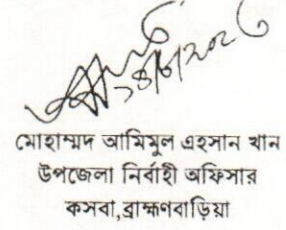 মোহাম্মদ আমিমুল এহসান খান
উপজেলা নির্বাহী অফিসার
কসবা,ব্রাহ্মণবাড়িয়া